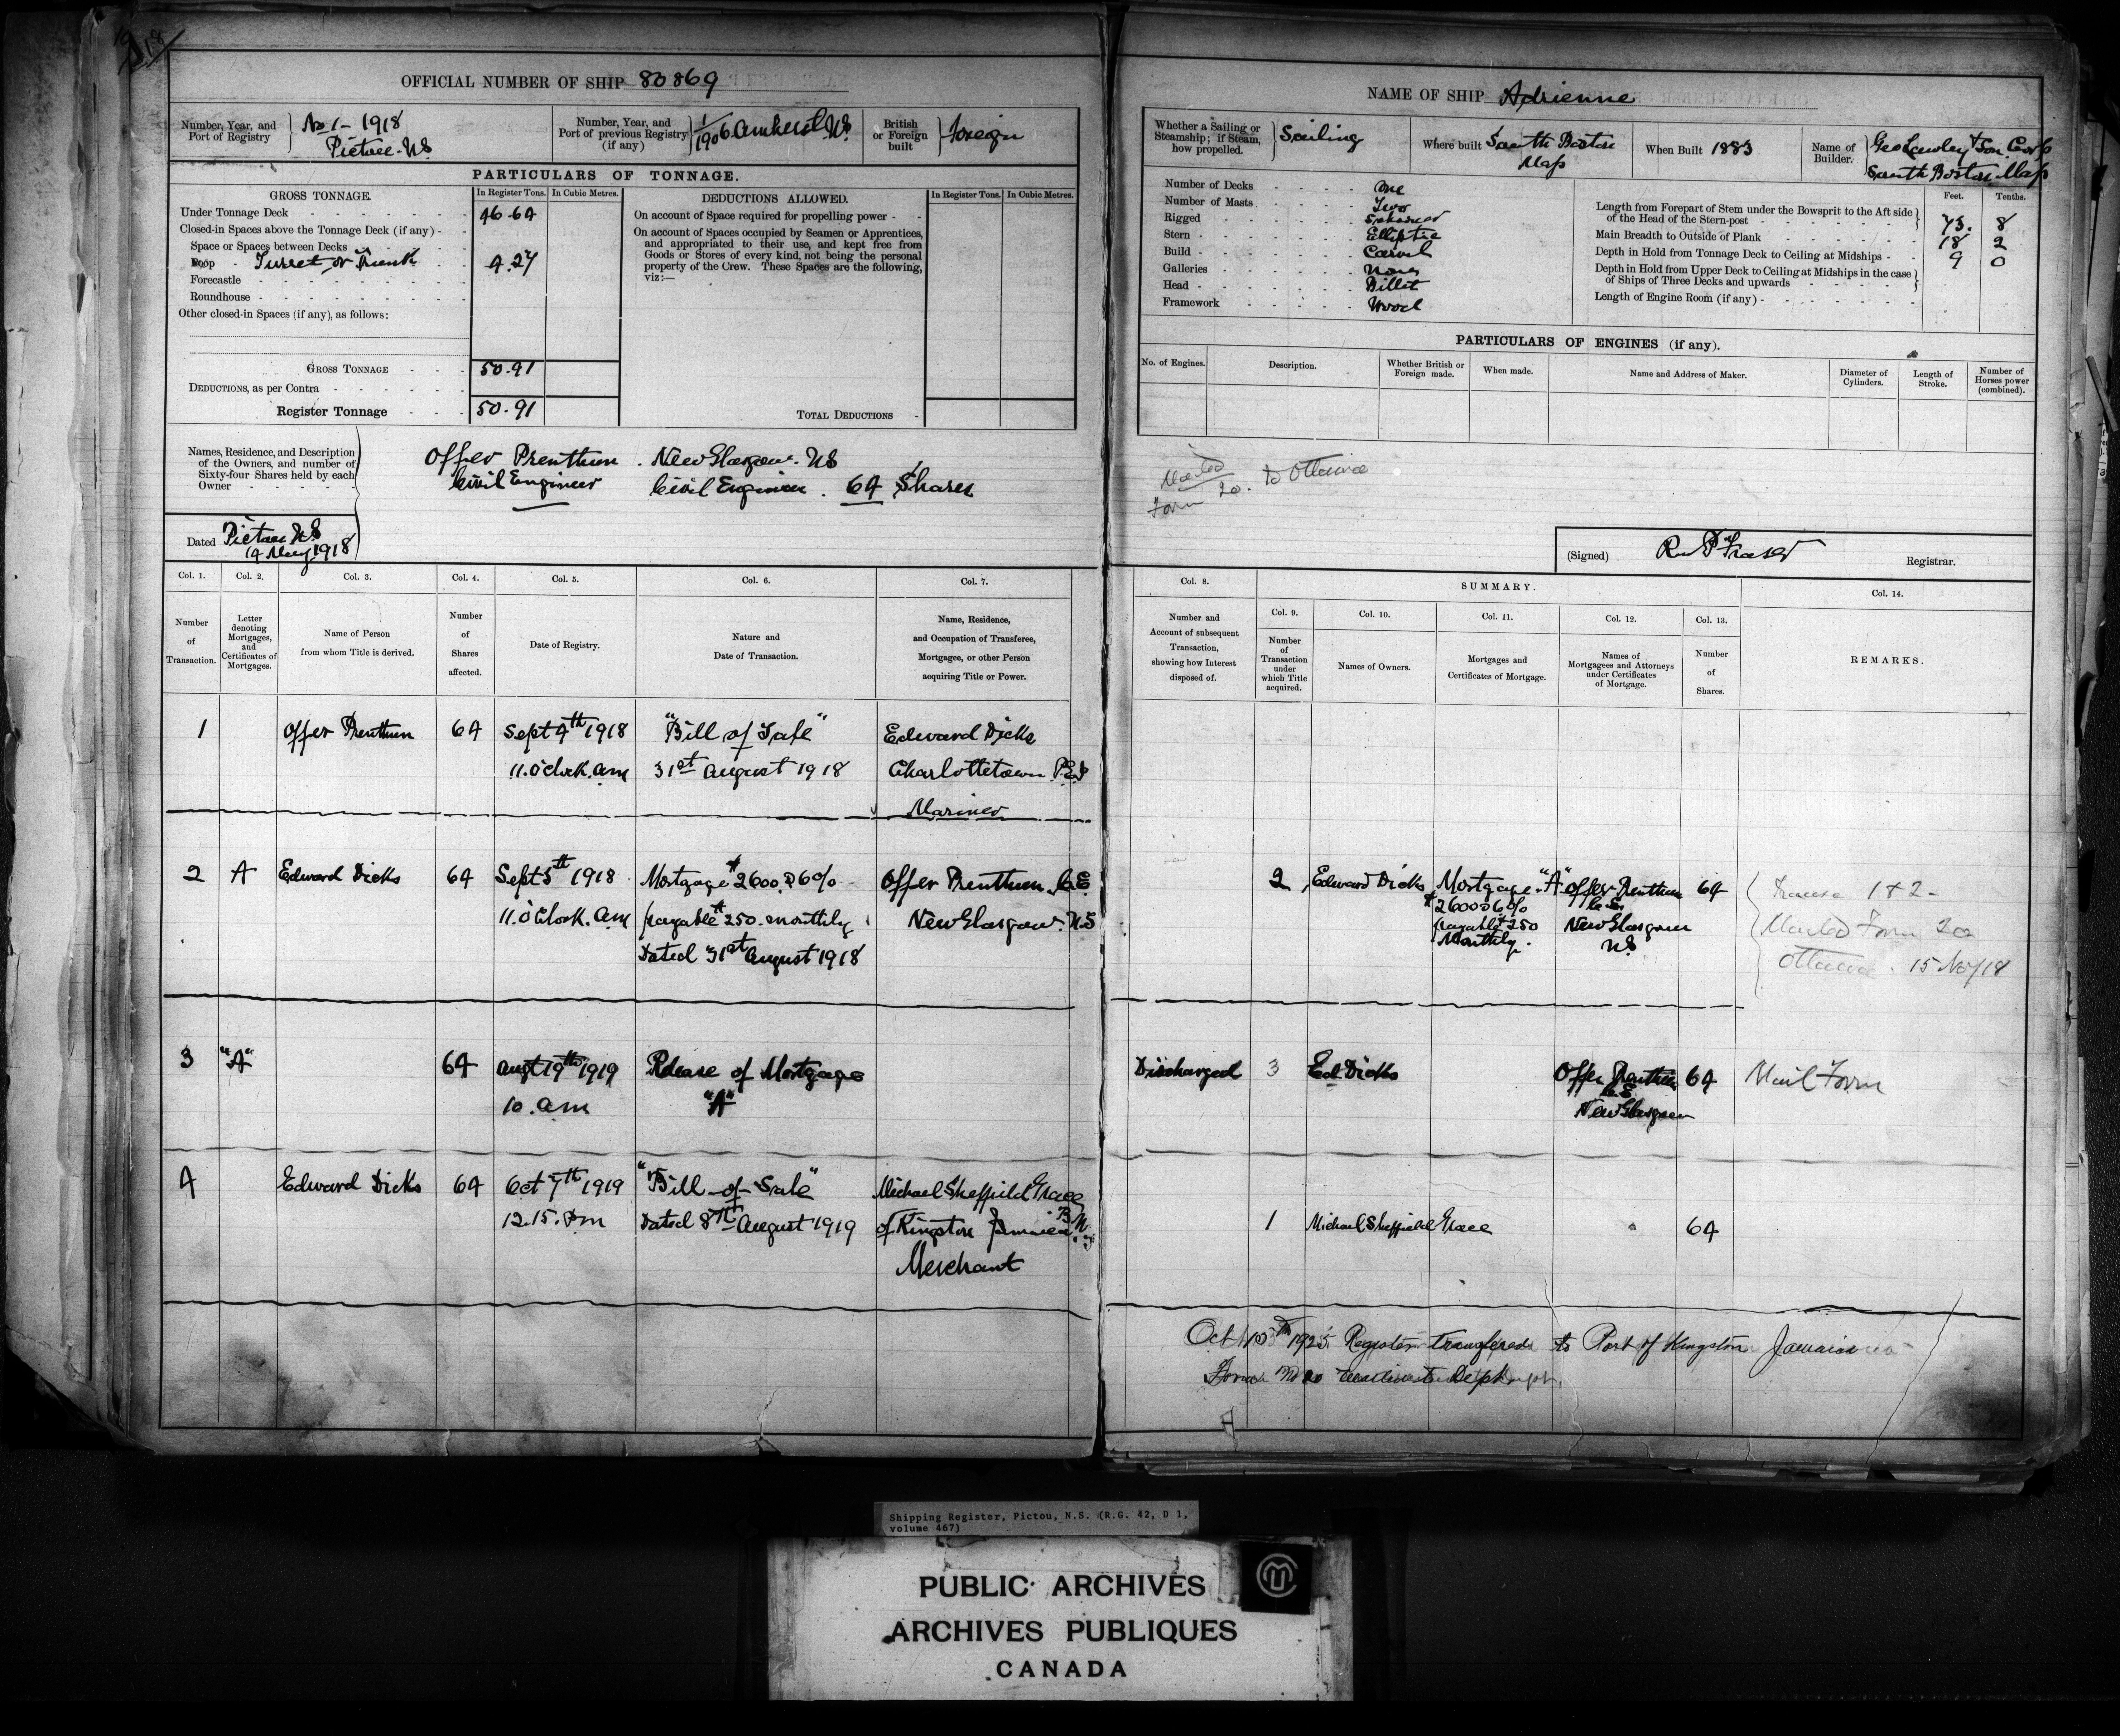 OFFICIAL NUMBER OF SHIP 80869
Number, Year, and Port of Registry } No 1 - 1918 Pictou. N.S.
Number, Year, and Port of previous Registry (if any) } 1/1906 Amherst N.S.
British or Foreign built } Foreign
PARTICULARS OF TONNAGE.
GROSS TONNAGE. In Register Tons. In Cubic Metres.
Under Tonnage Deck 46.64
Closed-in Spaces above the Tonnage Deck (if any) -
Space or Spaces between Decks
Poop - Turret or Trunk 4.27
Forecastle
Roundhouse
Other closed-in Spaces (if any), as follows:
GROSS TONNAGE 50.91
DEDUCTIONS, as per Contra
Register Tonnage 50.91
DEDUCTIONS ALLOWED. In Register Tons. In Cubic Metres.
On account of Space required for propelling power
On account of Spaces occupied by Seamen or Apprentices,
and appropriated to their use, and kept free from
Goods or Stores of every kind, not being the personal
property of the Crew. These Spaces are the following,
viz:—
TOTAL DEDUCTIONS
Names, Residence, and Description
of the Owners, and number of
Sixty-four Shares held by each
Owner
Offer Prenthun. New Glasgow. N.S
Civil Engineer Civil Engineer. 64 Shares
Dated Pictou N.S
14 May 1918
Col. 1. Col. 2. Col. 3. Col. 4. Col. 5. Col. 6. Col. 7.
Number of Transaction.
Letter denoting Mortgages, and Certificates of Mortgages.
Name of Person from whom Title is derived.
Number of Shares affected.
Date of Registry.
Nature and Date of Transaction.
Name, Residence, and Occupation of Transferee, Mortgagee, or other Person acquiring Title or Power.
1 Offer Prenthun 64 Sept 4th 1918 "Bill of Sale" Edward Dicks
11.oclock.am 31st August 1918 Charlottetown P.E.I
Mariner
2 A Edward Dicks 64 Sept 5th 1918 Mortgage $2600 @ 6% Offer Prenthun C.E.
11.oClock.am payable $250. monthly New Glasgow. N.S
Dated 31st August 1918
3 "A" 64 Augt 19th 1919 Release of Mortgage
10.am "A"
4 Edward Dicks 64 Oct 7th 1919 "Bill-of-Sale" Michael Sheffield Grace
12.15.Pm Dated 8th August 1919 of Kingston Jamaica B.W.I
Merchant
NAME OF SHIP Adrienne
Whether a Sailing or Steamship; if Steam, how propelled. } Sailing
Where built South Boston Mass
When Built 1883
Name of Builder. Geo Lawley & Son Corp South Boston. Mass
Number of Decks One
Number of Masts Two
Rigged Schooner
Stern Elliptic
Build Carvel
Galleries None
Head Billet
Framework Wood
Feet. Tenths.
Length from Forepart of Stem under the Bowsprit to the Aft side of the Head of the Stern-post 75. 8
Main Breadth to Outside of Plank 18 2
Depth in Hold from Tonnage Deck to Ceiling at Midships 9 0
Depth in Hold from Upper Deck to Ceiling at Midships in the case of Ships of Three Decks and upwards
Length of Engine Room (if any)
PARTICULARS OF ENGINES (if any).
No. of Engines. Description. Whether British or Foreign made. When made. Name and Address of Maker. Diameter of Cylinders. Length of Stroke. Number of Horses power (combined).
Mailed
Form 20. to Ottawa
(Signed) Fraser Registrar.
SUMMARY.
Col. 8. Col. 9. Col. 10. Col. 11. Col. 12. Col. 13. Col. 14.
Number and Account of subsequent Transaction, showing how Interest disposed of.
Number of Transaction under which Title acquired.
Names of Owners.
Mortgages and Certificates of Mortgage.
Names of Mortgagees and Attorneys under Certificates of Mortgage.
Number of Shares.
REMARKS.
2 Edward Dicks Mortgage. "A" Offer Prenthun 64
$2600 @ 6% C.E.
payable $250 New Glasgow
Monthly. N.S
Transc 1 & 2 -
Mailed Form 20
Ottawa. 15 Nov/18
Discharged 3 Ed Dicks Offer Prenthun 64 Mail Form
C.E.
New Glasgow
1 Michael Sheffield Grace 64
Oct 10th 1925 Register transfered to Port of Kingston Jamaica
Form No 20 Dept
Shipping Register, Pictou, N.S. (R.G. 42, D 1,
volume 467)
PUBLIC ARCHIVES
ARCHIVES PUBLIQUES
CANADA